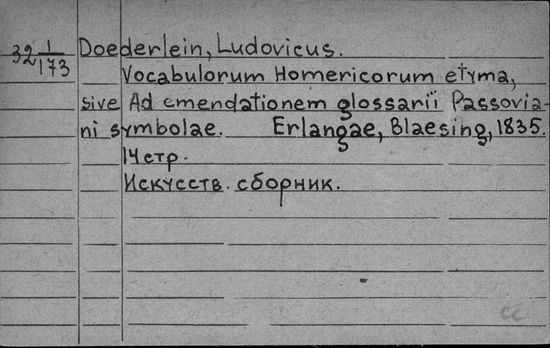 32 1/173 Doederlein, Ludovicus.
Vocabulorum Homericorum etyma,
sive Ad emendationem glossarii Passovia-
ni symbolae. Erlangae, Blaesing, 1835.
14стр.
Искусств. сборник.